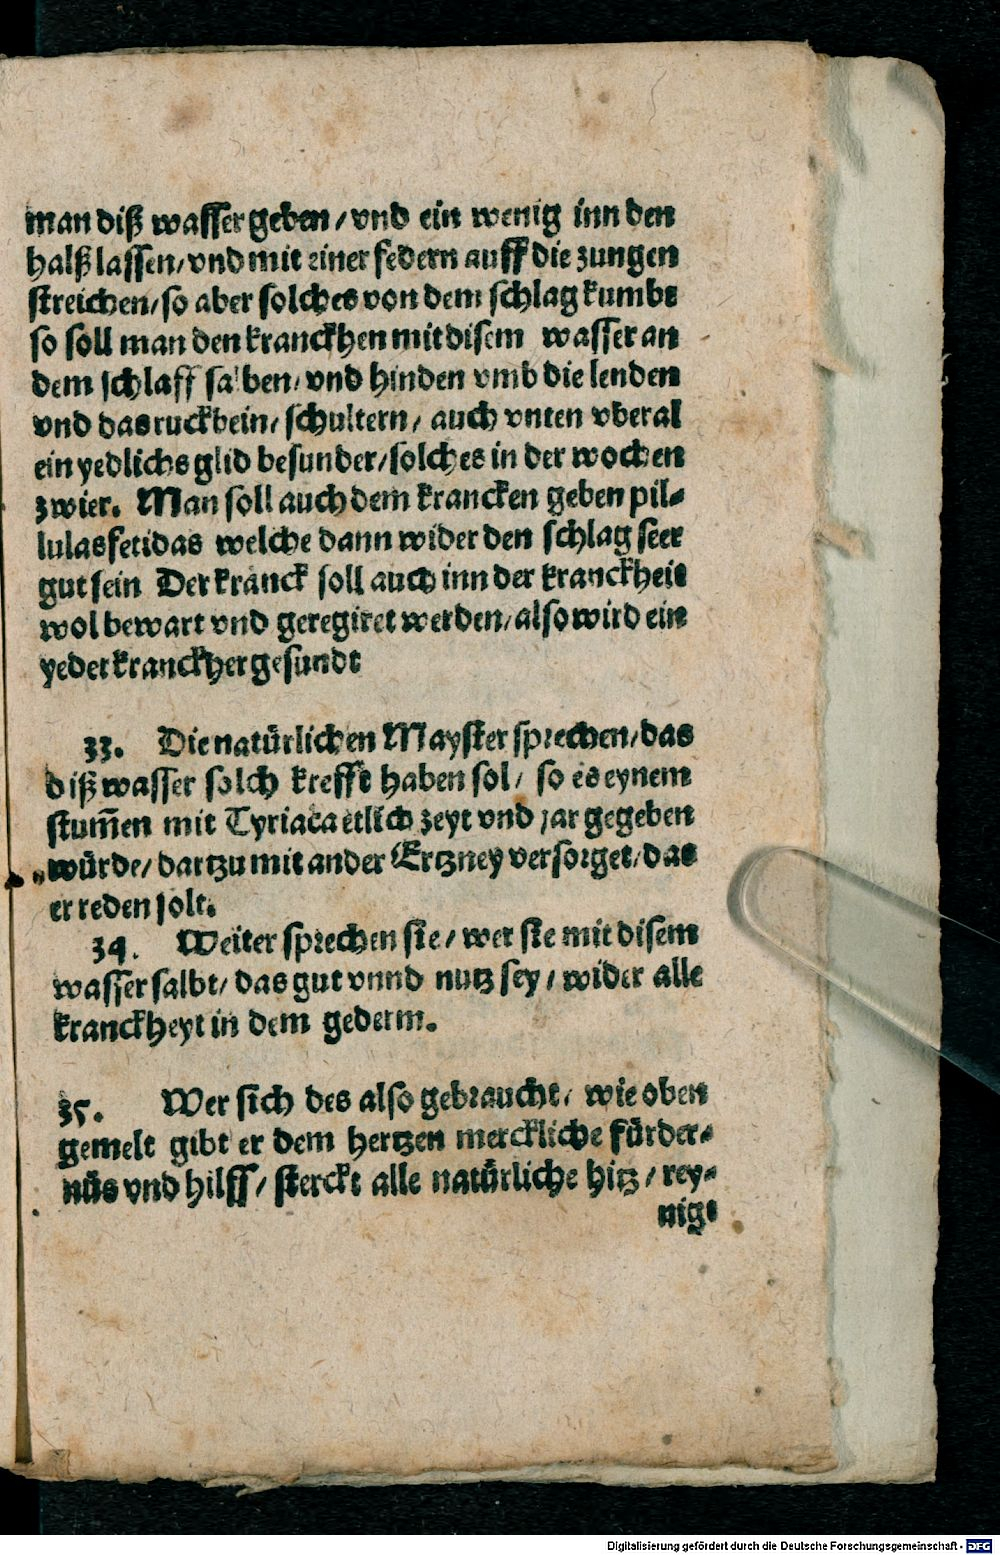 man diß wasser geben / vnd ein wenig inn den
halß lassen / vnd mit einer federn auff die zungen
streichen / so aber solches von dem schlag kumbt
so soll man den kranckhen mit disem wasser an
dem schlaff salben / vnd hinden vmb die lenden
vnd das ruckbein / schultern / auch vnten vberal
ein yedlichs glid besunder / solches in der wochen
zwier. Man soll auch dem krancken geben pil⸗
lulas fetidas welche dann wider den schlag seer
gut sein Der kranck soll auch inn der kranckheit
wol bewart vnd geregiret werden / also wird ein
yeder kranckher gesundt
33. Die natürlichen Mayster sprechen / das
diß wasser solch krefft haben sol / so es eynem
stum̄en mit Tyriaca etlich zeyt vnd jar gegeben
würde / dartzu mit ander Ertzney versorget / das
er reden solt.
34. Weiter sprechen sie / wer sie mit disem
wasser salbt / das gut vnnd nutz sey / wider alle
kranckheyt in dem gederm.
35. Wer sich des also gebraucht / wie oben
gemelt gibt er dem hertzen merckliche fürder⸗
nüs vnd hilff / sterckt alle natürliche hitz / rey⸗
nigt
Digitalisierung gefördert durch die Deutsche Forschungsgemeinschaft - DFG